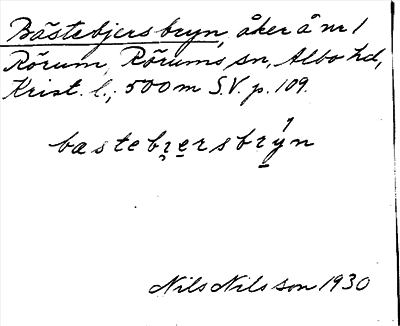 Bästebjersbryn, åker å nr 1
Rörum, Rörums sn, Albo hd,
Krist. l., 500 m S.V. p. 109.
bastebɪ̨ersbrýn
Nils Nilsson 1930